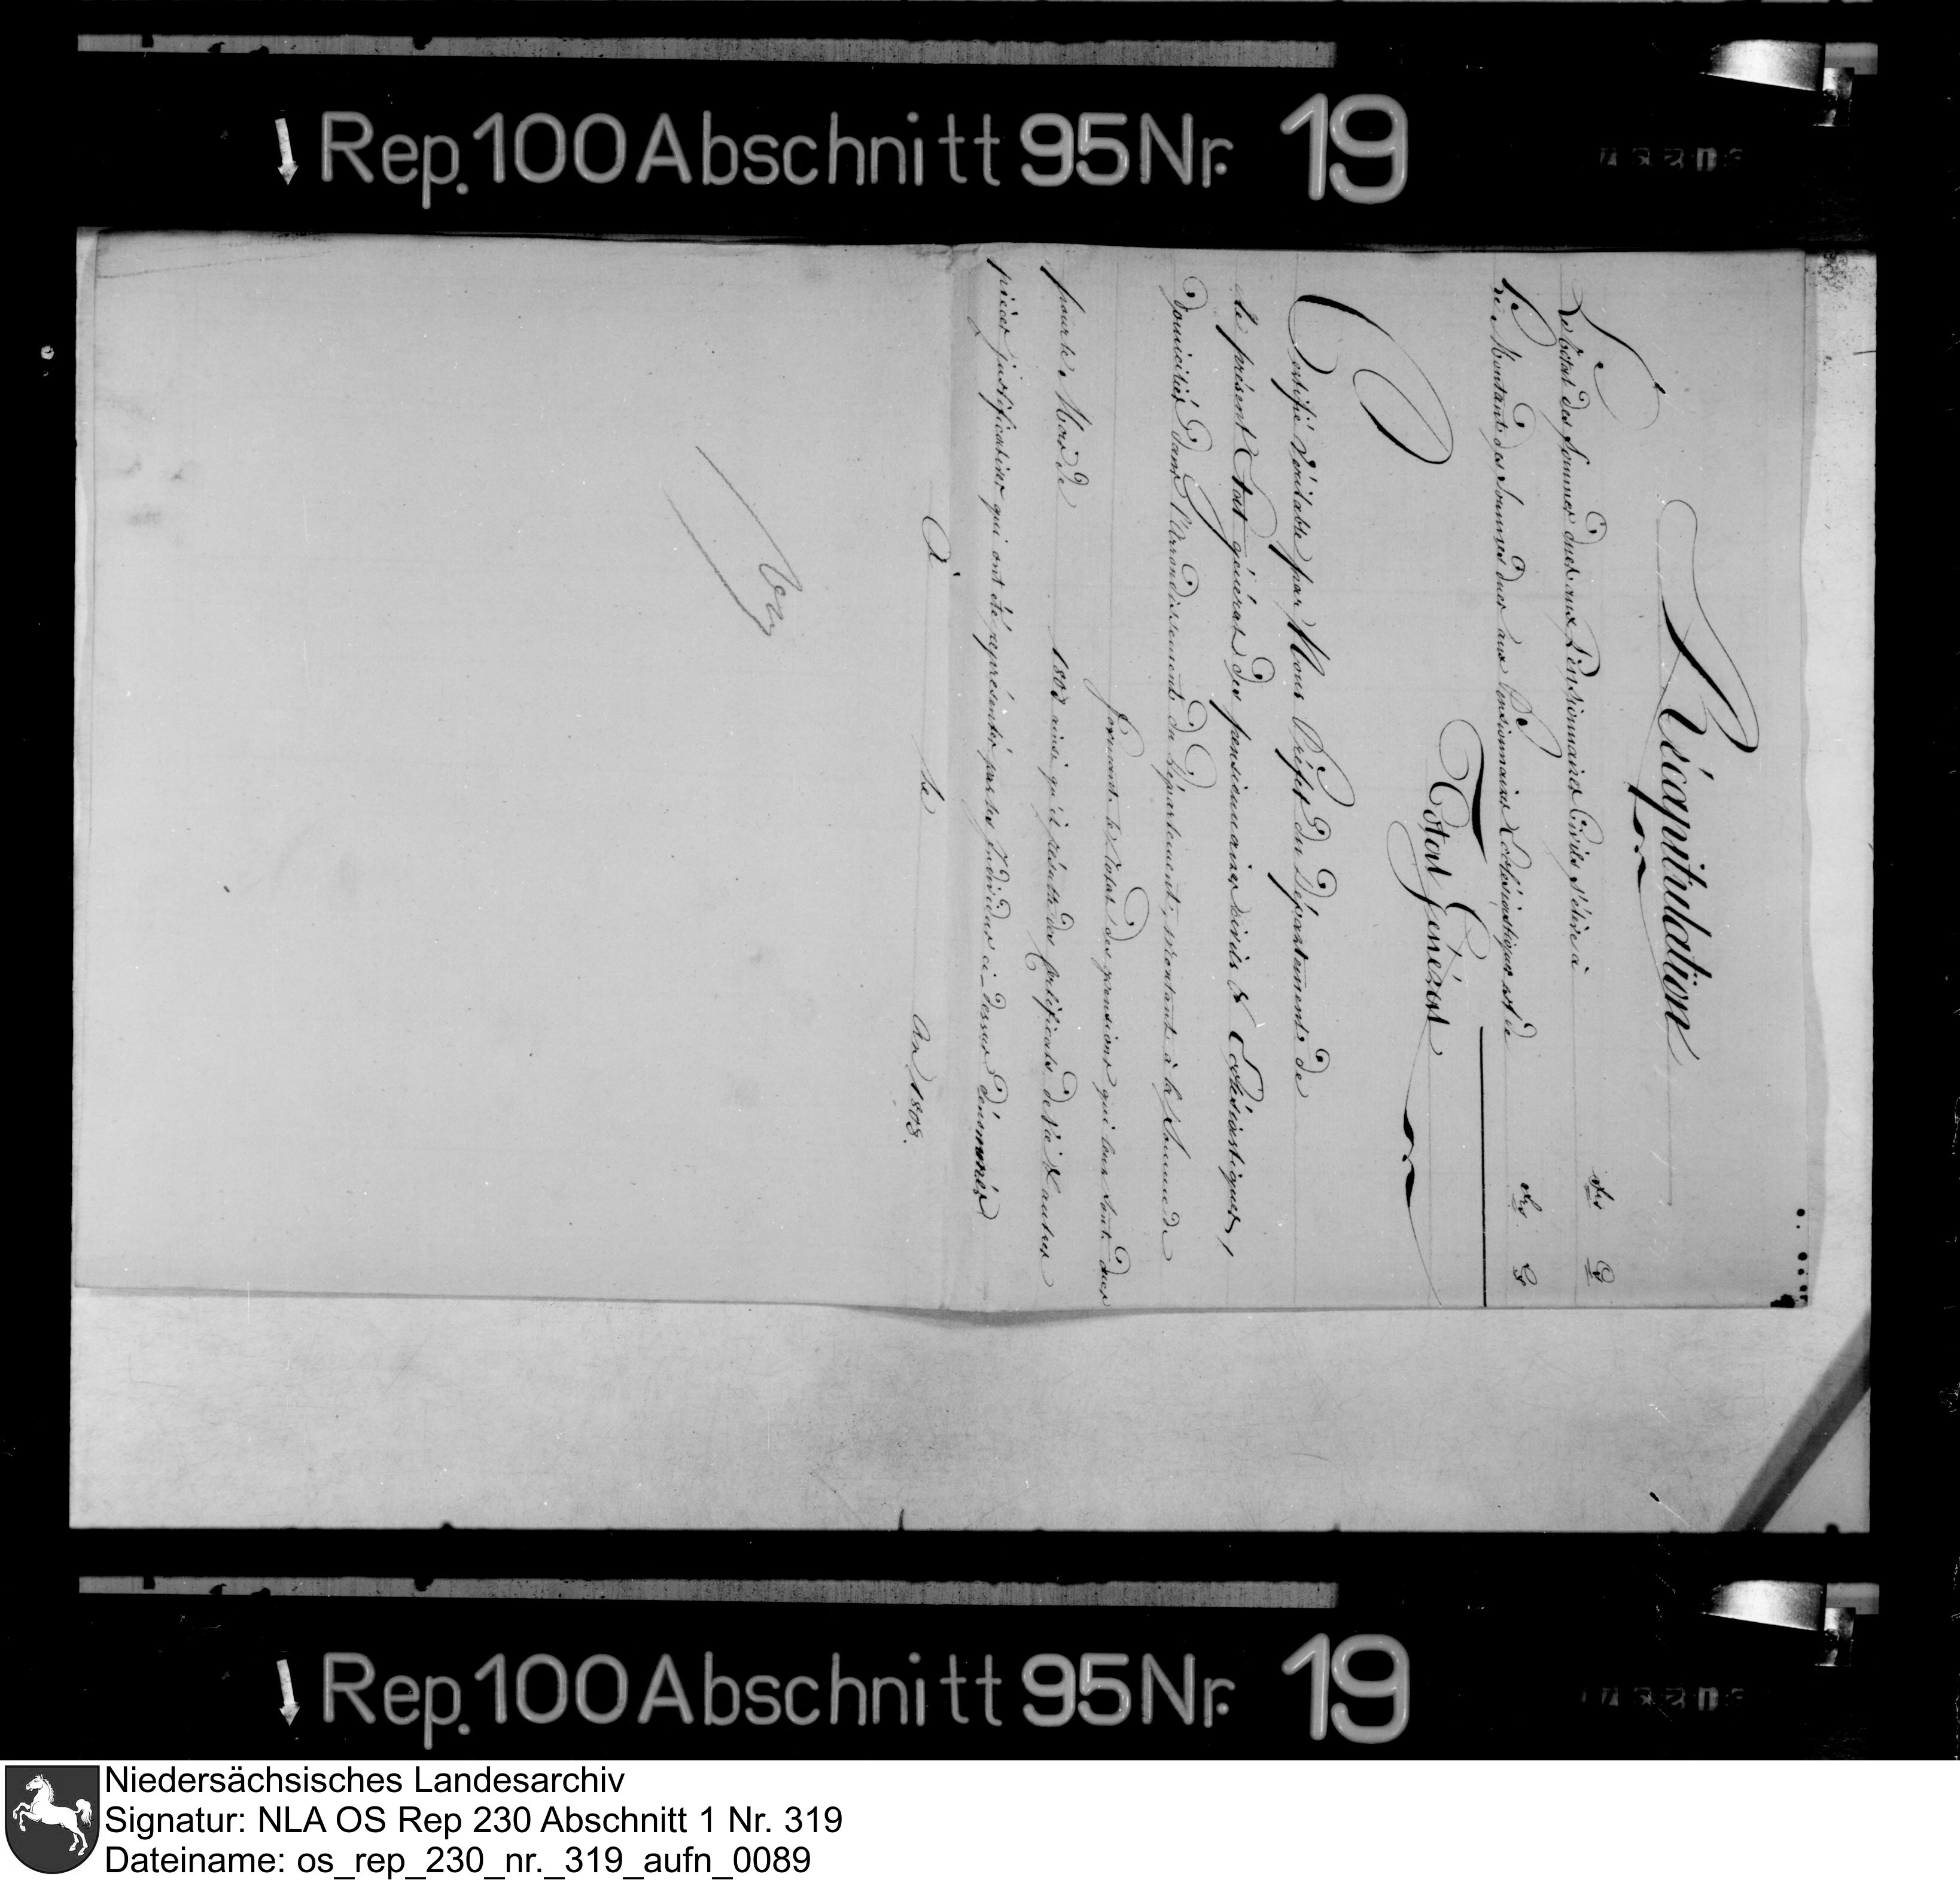 Rep. 100 Abschnitt 95 Nr. 19
Récapitulation
frs Cs
Le total des sommes dues aux Pensionnaires Civils s'élève à
Le Montant des sommes dues aux Pensionnaires Ecclésiastiques est de
frs Cs
Total Général
Certifié véritable par Nous Préfet du Département de
le présent Etat général des pensionnaires civils & Ecclésiastiques,
domiciliés dans l'Arrondissement du Département, montant à la Somme de
formant le total des pensions qui leur sont dues
pour le Mois de 1808 ainsi qu'il résulte des Certificats de Vie & autres
pièces justificatives qui ont été représentés par les Individus ci-dessus dénommés
à le An 1808.
Rep. 100 Abschnitt 95 Nr. 19
Niedersächsisches Landesarchiv
Signatur: NLA OS Rep 230 Abschnitt 1 Nr. 319
Dateiname: os_rep_230_nr._319_aufn_0089